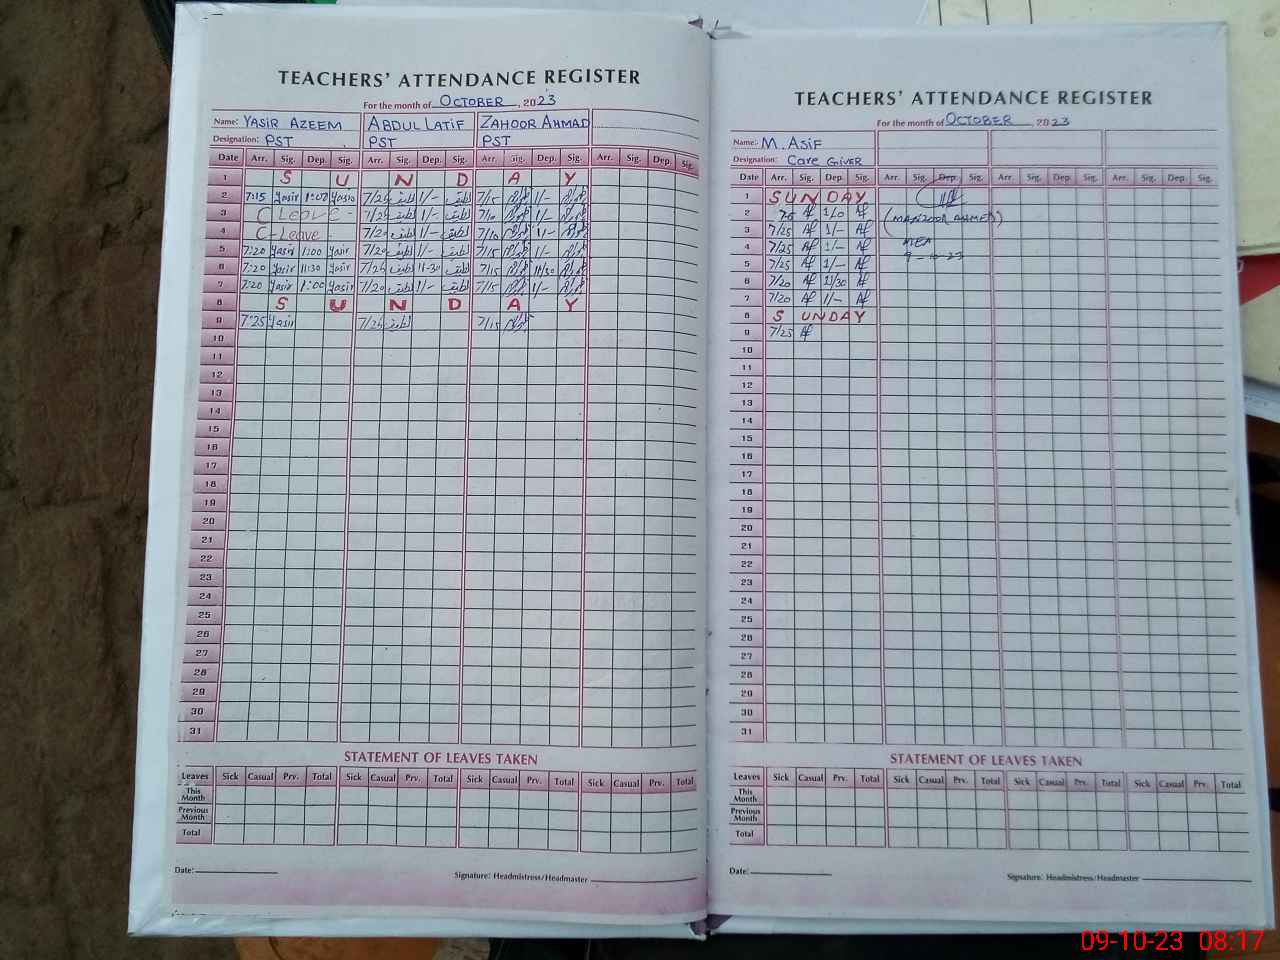 TEACHERS' ATTENDANCE REGISTER
For the month of OCTOBER, 2023
Name: YASIR AZEEM ABDUL LATIF ZAHOOR AHMAD
Designation: PST PST PST
Date Arr. Sig. Dep. Sig. Arr. Sig. Dep. Sig. Arr. Sig. Dep. Sig. Arr. Sig. Dep. Sig.
1 S U N D A Y
2 7:15 Yasir 1:00 Yasir 7/25 لطیف 1/- لطیف 7/15 1/-
3 C Leave - 7/25 لطیف 1/- لطیف 7/10 1/-
4 C-Leave - 7/20 لطیف 1/- لطیف 7/10 1/-
5 7:20 Yasir 1:00 Yasir 7/20 لطیف 1/- لطیف 7/15 1/-
6 7:20 Yasir 11:30 Yasir 7/25 لطیف 11-30 لطیف 7/15 11/30
7 7:20 Yasir 1:00 Yasir 7/20 لطیف 1/- لطیف 7/15 1/-
8 S U N D A Y
9 7:25 Yasir 7/25 لطیف 7/15
10
11
12
13
14
15
16
17
18
19
20
21
22
23
24
25
26
27
28
29
30
31
STATEMENT OF LEAVES TAKEN
Leaves Sick Casual Prv. Total Sick Casual Prv. Total Sick Casual Prv. Total Sick Casual Prv. Total
This Month
Previous Month
Total
Date:
Signature: Headmistress/Headmaster
TEACHERS' ATTENDANCE REGISTER
For the month of OCTOBER, 2023
Name: M. ASIF
Designation: Care GIVER
Date Arr. Sig. Dep. Sig. Arr. Sig. Dep. Sig. Arr. Sig. Dep. Sig. Arr. Sig. Dep. Sig.
1 SUNDAY
2 Af 1/0 Af (MANZOOR AHMED)
3 7/25 Af 1/- Af
4 7/25 Af 1/- Af MEA
5 7/25 Af 1/- Af 9-10-23
6 7/20 Af 11/30 Af
7 7/20 Af 1/- Af
8 SUNDAY
9 7/25 Af
10
11
12
13
14
15
16
17
18
19
20
21
22
23
24
25
26
27
28
29
30
31
STATEMENT OF LEAVES TAKEN
Leaves Sick Casual Prv. Total Sick Casual Prv. Total Sick Casual Prv. Total Sick Casual Prv. Total
This Month
Previous Month
Total
Date:
Signature: Headmistress/Headmaster
09-10-23 08:17